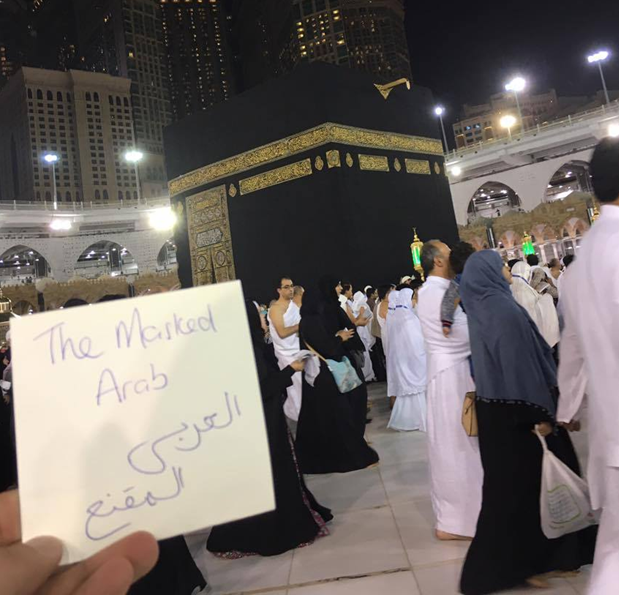 The Masked
Arab
العربي
المقنع